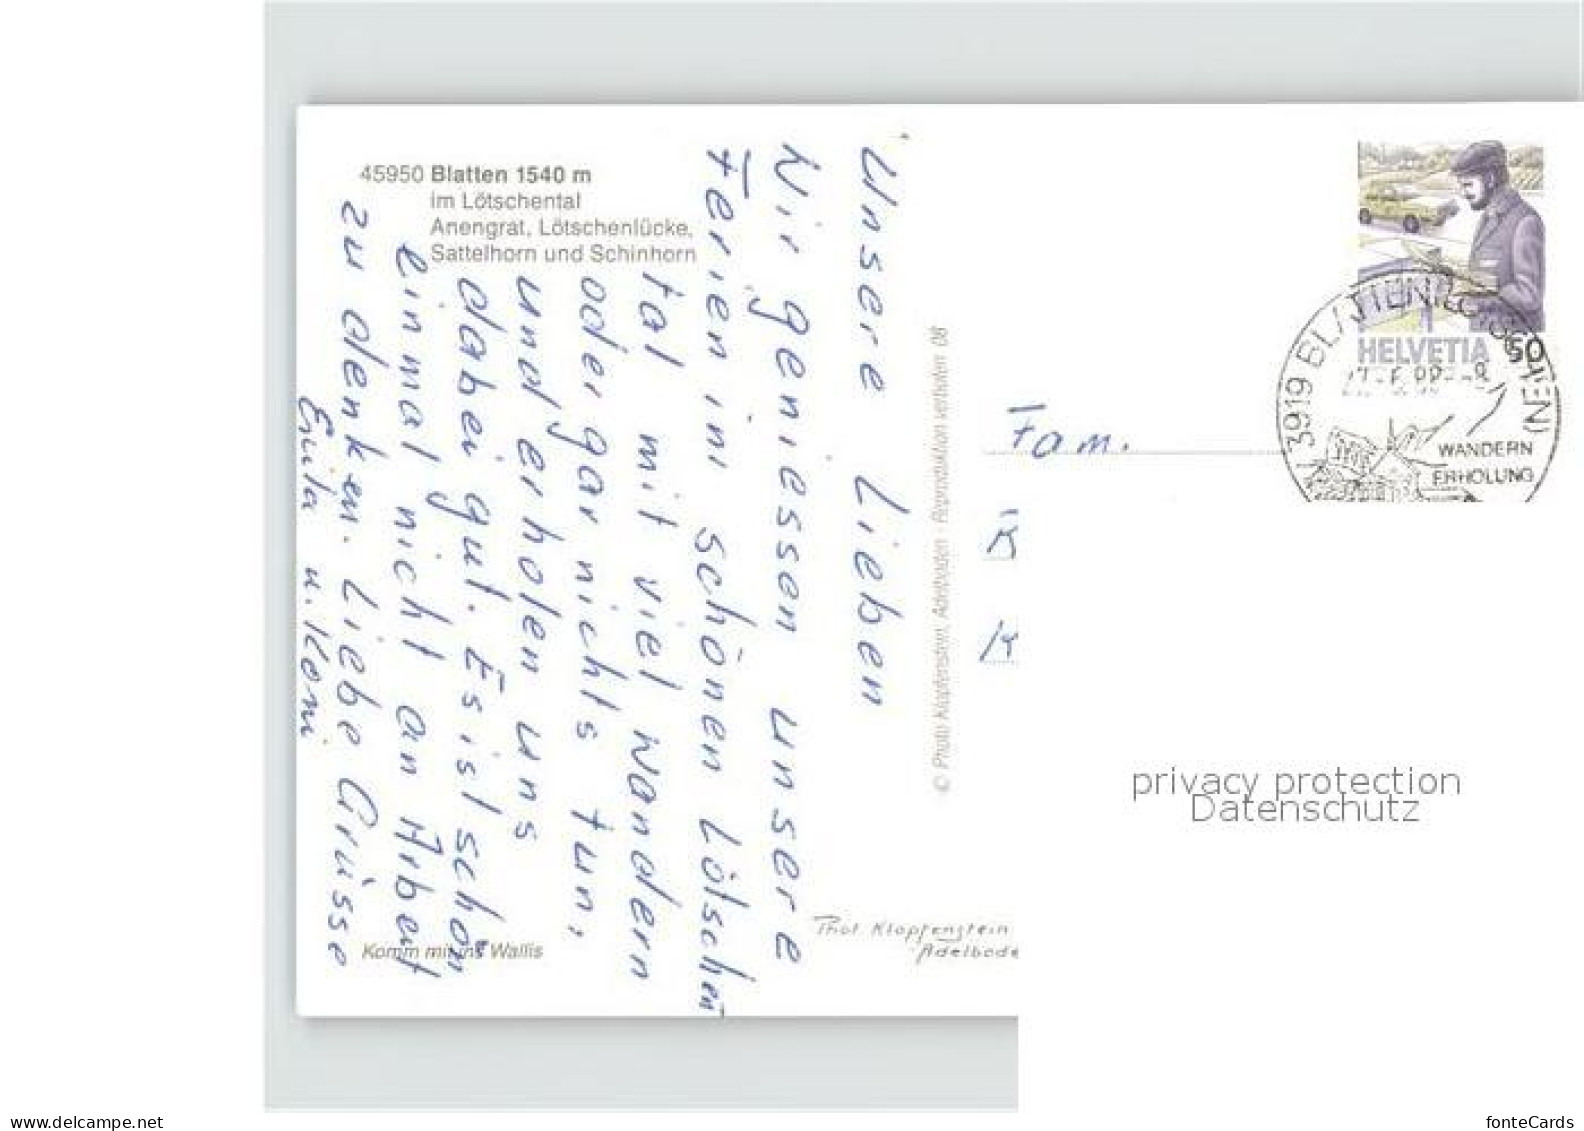 45950 Blatten 1540 m
im Lötschental
Anengrat, Lötschenlücke,
Sattelhorn und Schinhorn
Unsere Lieben
Wir geniessen unsere
Ferien im schönen Lötschen
tal mit viel Wandern
oder gar nichts tun,
und erholen uns
dabei gut. Es ist schön
einmal nicht an Arbeit
zu denken. Liebe Grüsse
u. Koni
Komm mit ins Wallis
© Photo Klopfenstein, Adelboden - Reproduktion verboten 08
Phot. Klopfenstein
Adelbode
HELVETIA 50
3919 BLATTEN (LÖTSCHEN)
WANDERN
ERHOLUNG
Fam.
K
K
privacy protection
Datenschutz
www.delcampe.net
fonteCards